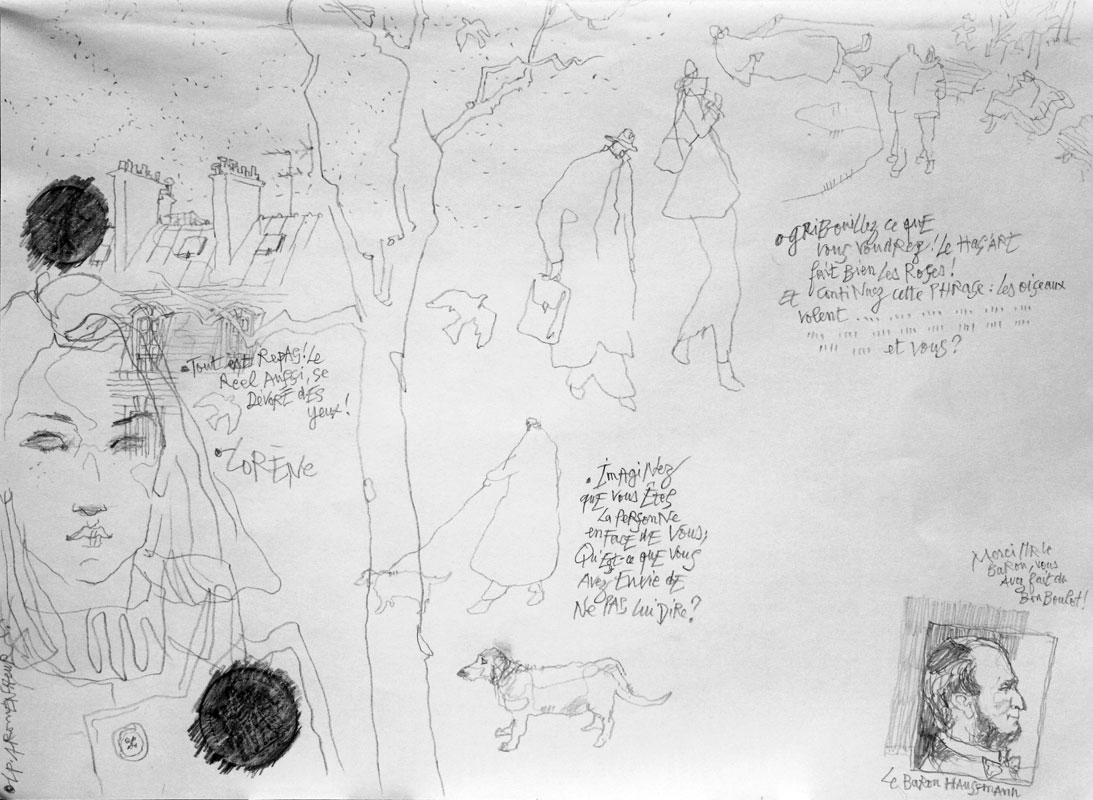 •Tout est REPAS! Le
Réel Aussi, se
DévoRE dES
yeux!
•LORÈNe
•gRiBouillez ce quE
vous voudRez! Le HasART
fait Bien Les Roses!
Et contiNuez cette PHRase: Les oiseaux
volent .... .... .... .... .... ....
.... .... .... .... .... .... ....
.... .... et vous?
•ImAgiNez
quE vous Êtes
La peRsonNe
en FacE dE Vous,
Qu'Est-ce que vous
Avez Envie dE
Ne PAS Lui DiRe?
Merci MR le
BaRon, vous
Avez fait du
Bon Boulot!
Le BaRon HAussmAnn